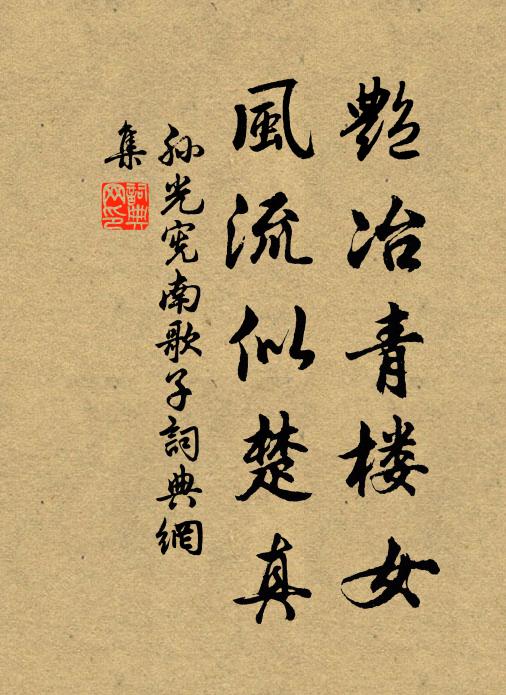 艷冶青楼女
風流似楚真
孙光宪南歌子詞典網
集
詞典网印